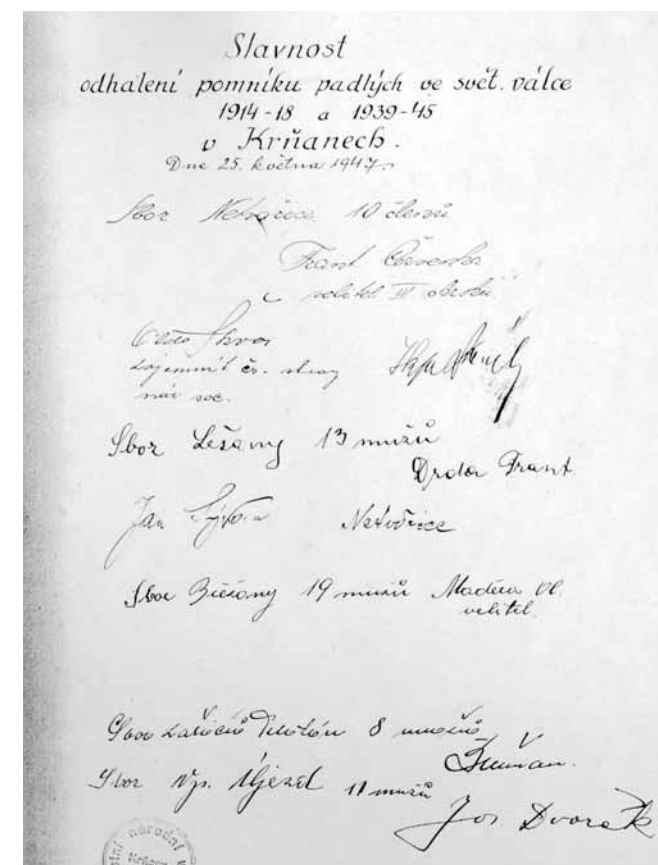 Slavnost
odhalení pomníku padlých ve svět. válce
1914-18 a 1939-45
v Krňanech.
Dne 25. května 1947.
Sbor Netvořice 10 členů
Frant Červenka
velitel III okrsku
Olda
tajemník čs. strany
nár soc.
Sbor Lešany 13 mužů
Drda Frant
Jan Sýkora Netvořice
Sbor Břežany 19 mužů Ol.
velitel
Sbor 8 mužů
Sbor Vys. Újezd 11 mužů
Jos Dvořák
národní